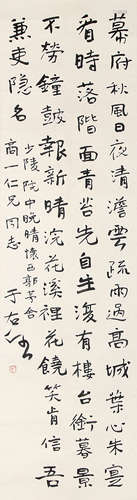 幕府秋風日夜清澹雲疏雨過高城葉心朱實
看時落階面青苔先自生復有樓台銜暮景
不勞鐘鼓報新晴浣花溪裡花饒笑肯信吾
兼吏隐名
少陵院中晚晴懷西郭茅舍
高一仁兄同志
于右任